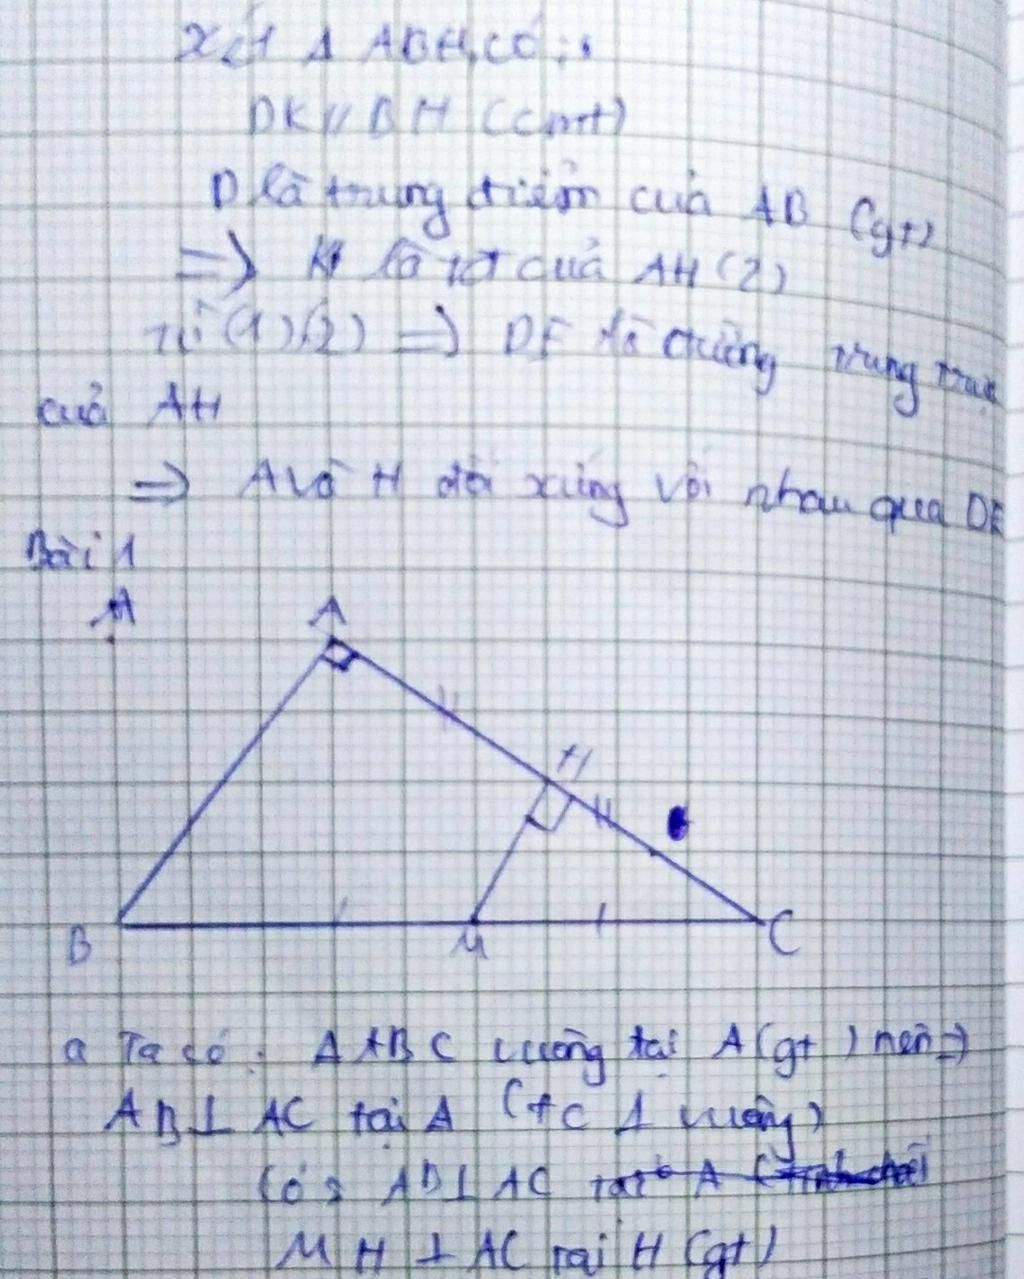 Xét Δ ABH, có:
DK // BH (cmt)
D là trung điểm của AB (gt)
=> K là tđ của AH (2)
Từ (1), (2) => DE là đường trung trực
của AH
=> A và H đối xứng với nhau qua DE
Bài 1
A
A
H
B
M
C
a Ta có: Δ ABC vuông tại A (gt) nên =>
AB ⊥ AC tại A (tc Δ vuông)
Có: AB ⊥ AC
MH ⊥ AC tại H (gt)